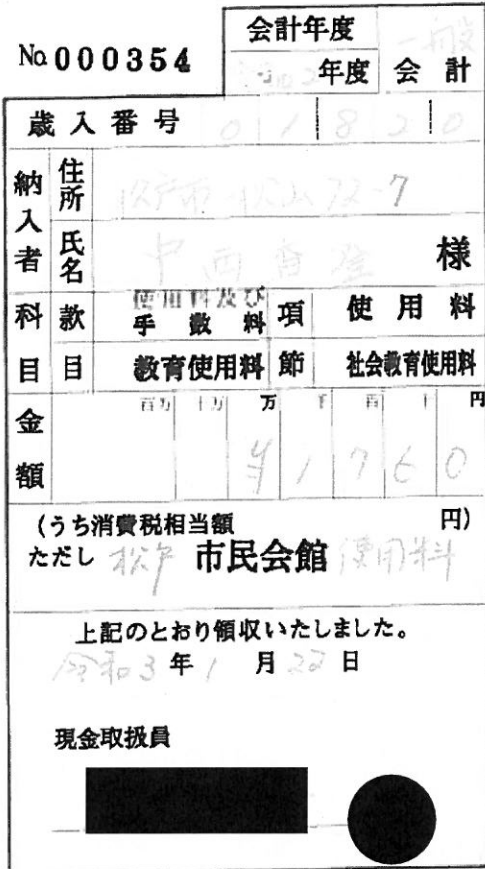 No.000354
会計年度
一般
令和2年度 会計
歳入番号 01820
納入者
住所 松戸市 松山72-7
氏名 中西香登 様
科目
款 使用料及び手数料 項 使用料
目 教育使用料 節 社会教育使用料
金額
百万 十万 万 千 百 十 円
¥1760
(うち消費税相当額 円)
ただし 松戸 市民会館 使用料
上記のとおり領収いたしました。
令和3年1月22日
現金取扱員